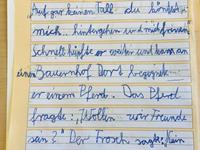 Auf gar keinen Fall du könntest
mich hintergehen und mitfressen
Schnell hüpfte er weiter und kam an
einen Bauernhof Dort begegnete
er einem Pferd. Das Pferd
fragte: „Wollen wir Freunde
sein?" Der Frosch sagte: „Nein